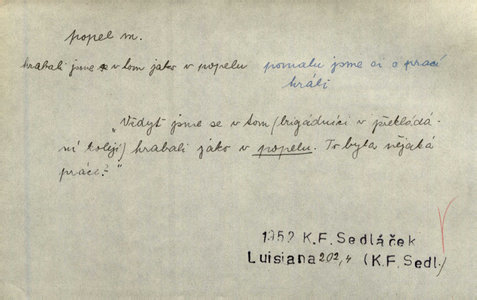 popel m.
hrabali jsme se v tom jako v popelu pomalu jsme si o práci
hráli
„Vždyť jsme se v tom (brigádníci v překládá-
ní kolejí) hrabali jako v popelu. To byla nějaká
práce?"
1952 K.F.Sedláček
Luisiana 202,4 (K.F.Sedl.)